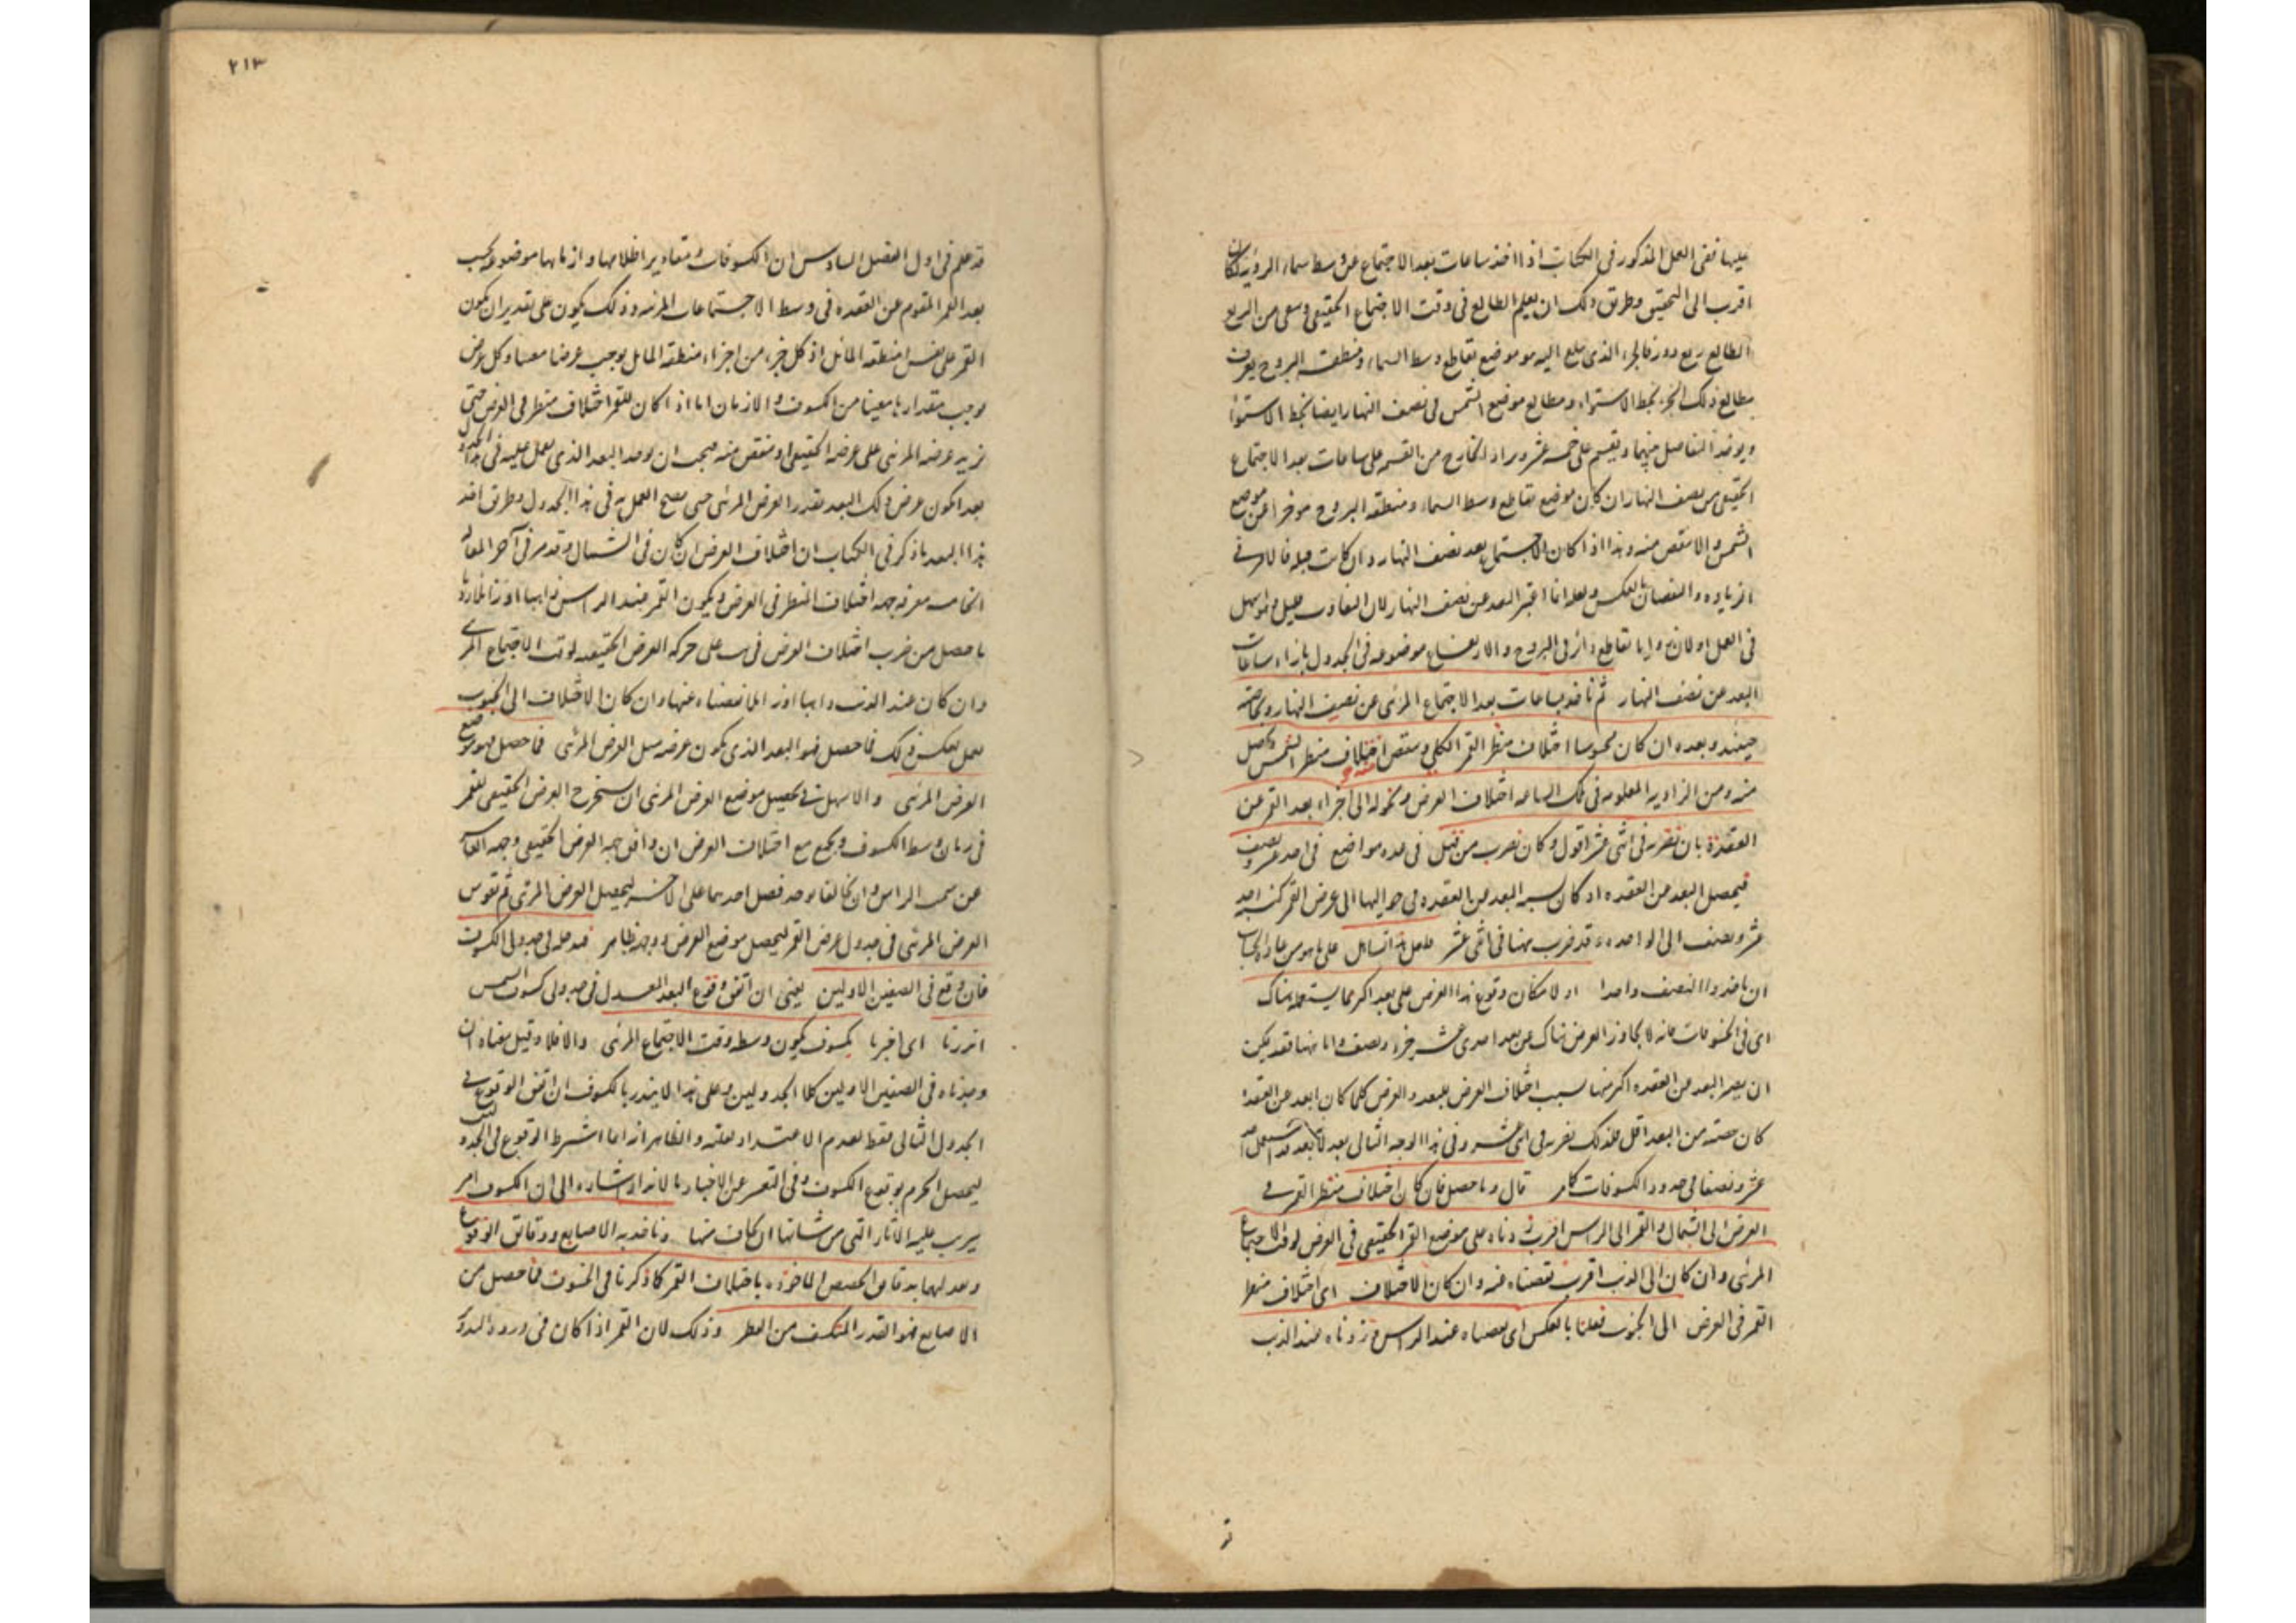 عليها ففى العمل المذكور فى الكتاب اذا اخذ ساعات بعد الاجتماع عن وسط سماء الرؤية لكان
اقرب الى التحقيق وطريق ذلك ان يعلم الطالع فى وقت الاجتماع الحقيقى
الطالع ربع دور فالجزء الذى بلغ اليه هو موضع تقاطع وسط السماء ومنطقة البروج يعرف
مطالع ذلك الجزء بخط الاستواء ومطالع موضع الشمس فى نصف النهار ايضا بخط الاستواء
ويوخذ التفاضل بينهما ويقسم على خمسة عشر ويزاد الخارج من القسمة على ساعات بعد الاجتماع
الحقيقى من نصف النهار ان كان موضع تقاطع وسط السماء ومنطقة البروج موخرا عن موضع
الشمس والا ينقص منه وهذا اذا كان الاجتماع بعد نصف النهار وان كانت قبله فالامر فى
الزيادة والنقصان بالعكس ولعله انما اعتبر البعد عن نصف النهار لان التفاوت قليل وهو اسهل
فى العمل او لان زوايا تقاطع دائرتى البروج والارتفاع موضوعة فى الجدول بازاء ساعات
البعد عن نصف النهار ثم ناخذ بساعات بعد الاجتماع المرئى عن نصف النهار
حينئذ وبعده ان كان محسوسا اختلاف منظر القمر الكلى وينقص منه اختلاف منظر الشمس ونحصل
منه ومن الزاوية المعلومة فى تلك الساعة اختلاف العرض ونحوله الى اجزاء بعد القمر عن
العقدة بان نضربه فى اثنى عشر اقول وكان نضرب من قبل فى عدة مواضع فى احد عشر ونصف
فيحصل البعد من العقدة اذ كان نسبة البعد من العقدة فى حواليها الى عرض القمر كنسبة احد
عشر ونصف الى الواحد وقد ضرب هنا فى اثنى عشر على ما هو من عادة الحساب
ان ياخذوا النصف واحدا او لامكان وقوع هذا العرض على بعد اكثر مما يستعمله هناك
اى فى الخسوفات فانه لا يجاوز العرض هناك عن بعد احدى عشر جزء ونصف واما هنا فقد يمكن
ان يصير البعد من العقدة اكثر منها بسبب اختلاف العرض للبعد والعرض كلما كان ابعد عن العقدة
كان حصته من البعد اقل فلذلك نضربه فى اثنى عشر وفى هذا الوجه الثانى بعد
عشر ونصفا فى حدود الكسوفات كما مر قال وما حصل فان كان اختلاف منظر القمر فى
العرض الى الشمال والقمر الى الراس اقرب زدناه على موضع القمر الحقيقى فى العرض لوقت الاجتماع
المرئى وان كان الى الذنب اقرب نقصناه منه وان كان الاختلاف اى اختلاف منظر
القمر فى العرض الى الجنوب فعلنا بالعكس اى نقصناه عند الراس وزدناه عند الذنب
٢١٣
قد علم فى اول الفصل السادس ان الكسوفات ومقادير اظلامها وازمانها موضوعة بحسب
بعد القمر المقوم من العقدة فى وسط الاجتماعات المرئية وذلك يكون على تقدير ان يكون
القمر على نفس منطقة المائل اذ كل جزء من اجزاء منطقة المائل يوجب عرضا معينا وكل عرض
يوجب مقدارا معينا من الكسوف والازمان اما اذا كان للقمر اختلاف منظر فى العرض حتى
يزيد عرضه المرئى على عرضه الحقيقى او ينقص منه فيجب ان يوخذ البعد الذى يعمل عليه فى هذا الجدول
بعدا يكون عرض ذلك البعد بقدر العرض المرئى حتى يصح العمل به فى هذا الجدول وطريق اخذ
هذا البعد ما ذكر فى الكتاب ان اختلاف العرض ان كان فى الشمال وقد مر فى آخر المقالة
الخامسة معرفة جهة اختلاف المنظر فى العرض ويكون القمر عند الراس
ما حصل من ضرب اختلاف العرض فى يب على حركة العرض الحقيقية لوقت الاجتماع المرئى
وان كان عند الذنب نقصناه عنها وان كان الاختلاف الى الجنوب
نعمل بعكس ذلك فما حصل فهو البعد الذى يكون عرضه مثل العرض المرئى فما حصل فهو موضع
العرض المرئى والاسهل فى تحصيل موضع العرض المرئى ان يستخرج العرض الحقيقى للقمر
فى زمان وسط الكسوف ويجمع مع اختلاف العرض ان وافق جهة العرض الحقيقى وجهة
عن سمت الراس وان تخالفا يوخذ فضل احدهما على الاخر ليحصل العرض المرئى ثم تقوس
العرض المرئى فى جدول عرض القمر ليحصل موضع العرض ووجهه ظاهر فندخله فى جدولى الكسوف
فان وقع فى الصفين الاولين يعنى ان اتفق وقوع البعد المعدل فى جدولى كسوف الشمس
انذرنا اى اخبرنا بكسوف يكون وسطه وقت الاجتماع المرئى والا فلا وقيل معناه ان
وجدناه فى الصفين الاولين كلا الجدولين وعلى هذا لا ينذر بالكسوف ان اتفق الوقوع فى
الجدول الثانى فقط لعدم الاعتداد بقلته والظاهر انه انما اشترط الوقوع فى الجدولين
ليحصل الجزم بوقوع الكسوف وفى التعبير عن الاخبار بالانذار اشارة الى ان الكسوف امر
يترتب عليه الاثار التى من شانها ان يخاف منها وناخذ به الاصابع ودقائق الوقوع
ونعدلهما بدقائق الحصص الماخوذة باختلاف القمر كما ذكرنا فى الخسوف فما حصل من
الاصابع فهو القدر المنكسف من القطر وذلك لان القمر اذا كان فى ذروة التدوير